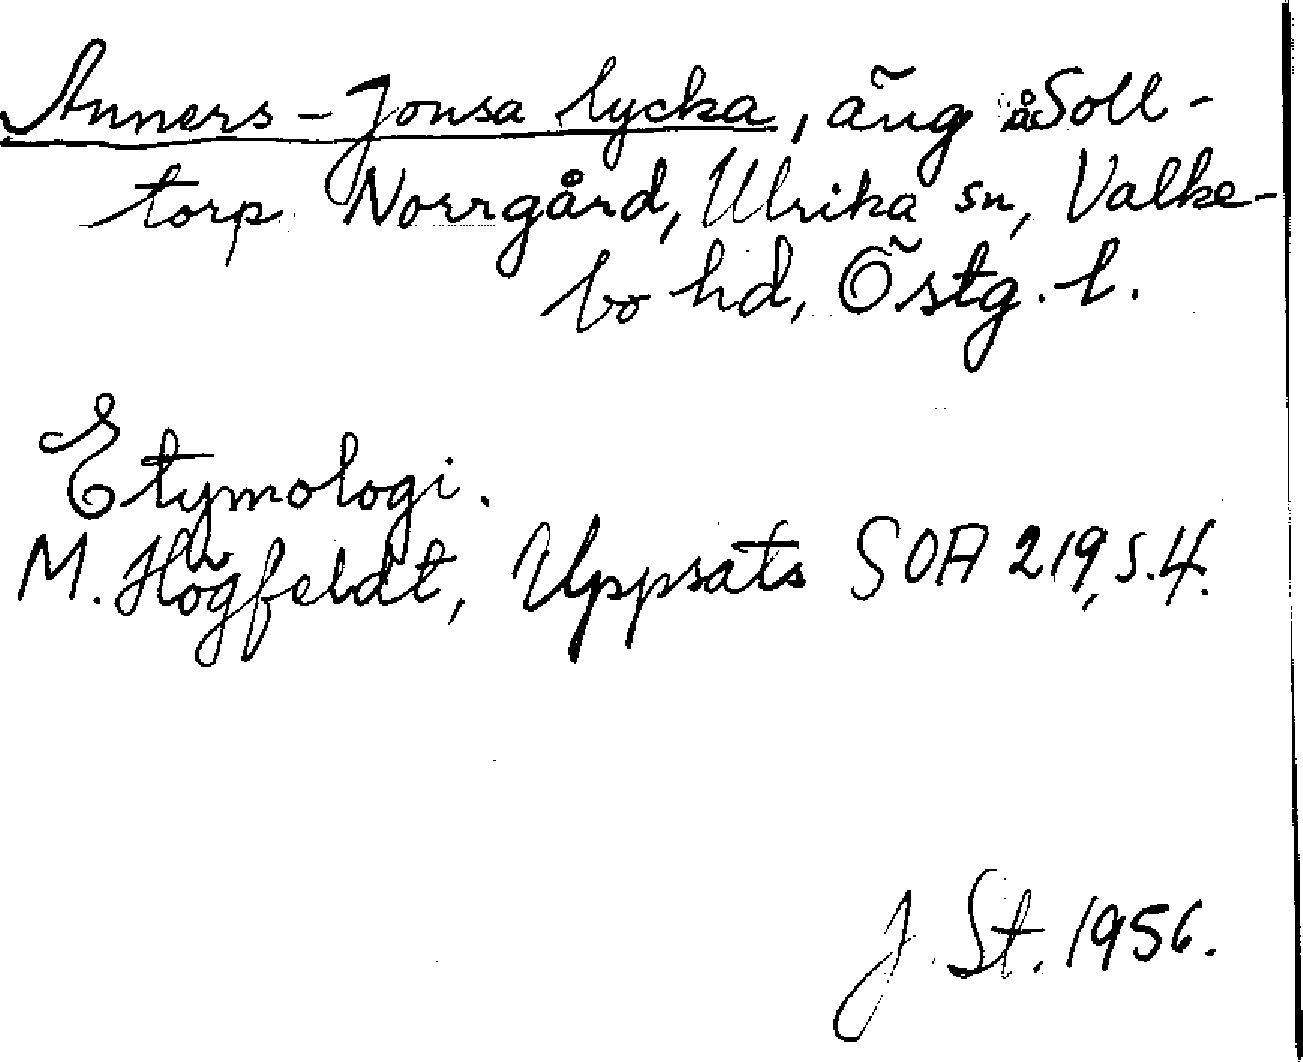 Anners-Jonsa lycka, äng å Soll-
torp Norrgård, Ulrika sn, Valke-
bo hd, Östg. l.
Etymologi.
M. Högfeldt, Uppsats SOA 219, s. 4.
J. St. 1956.